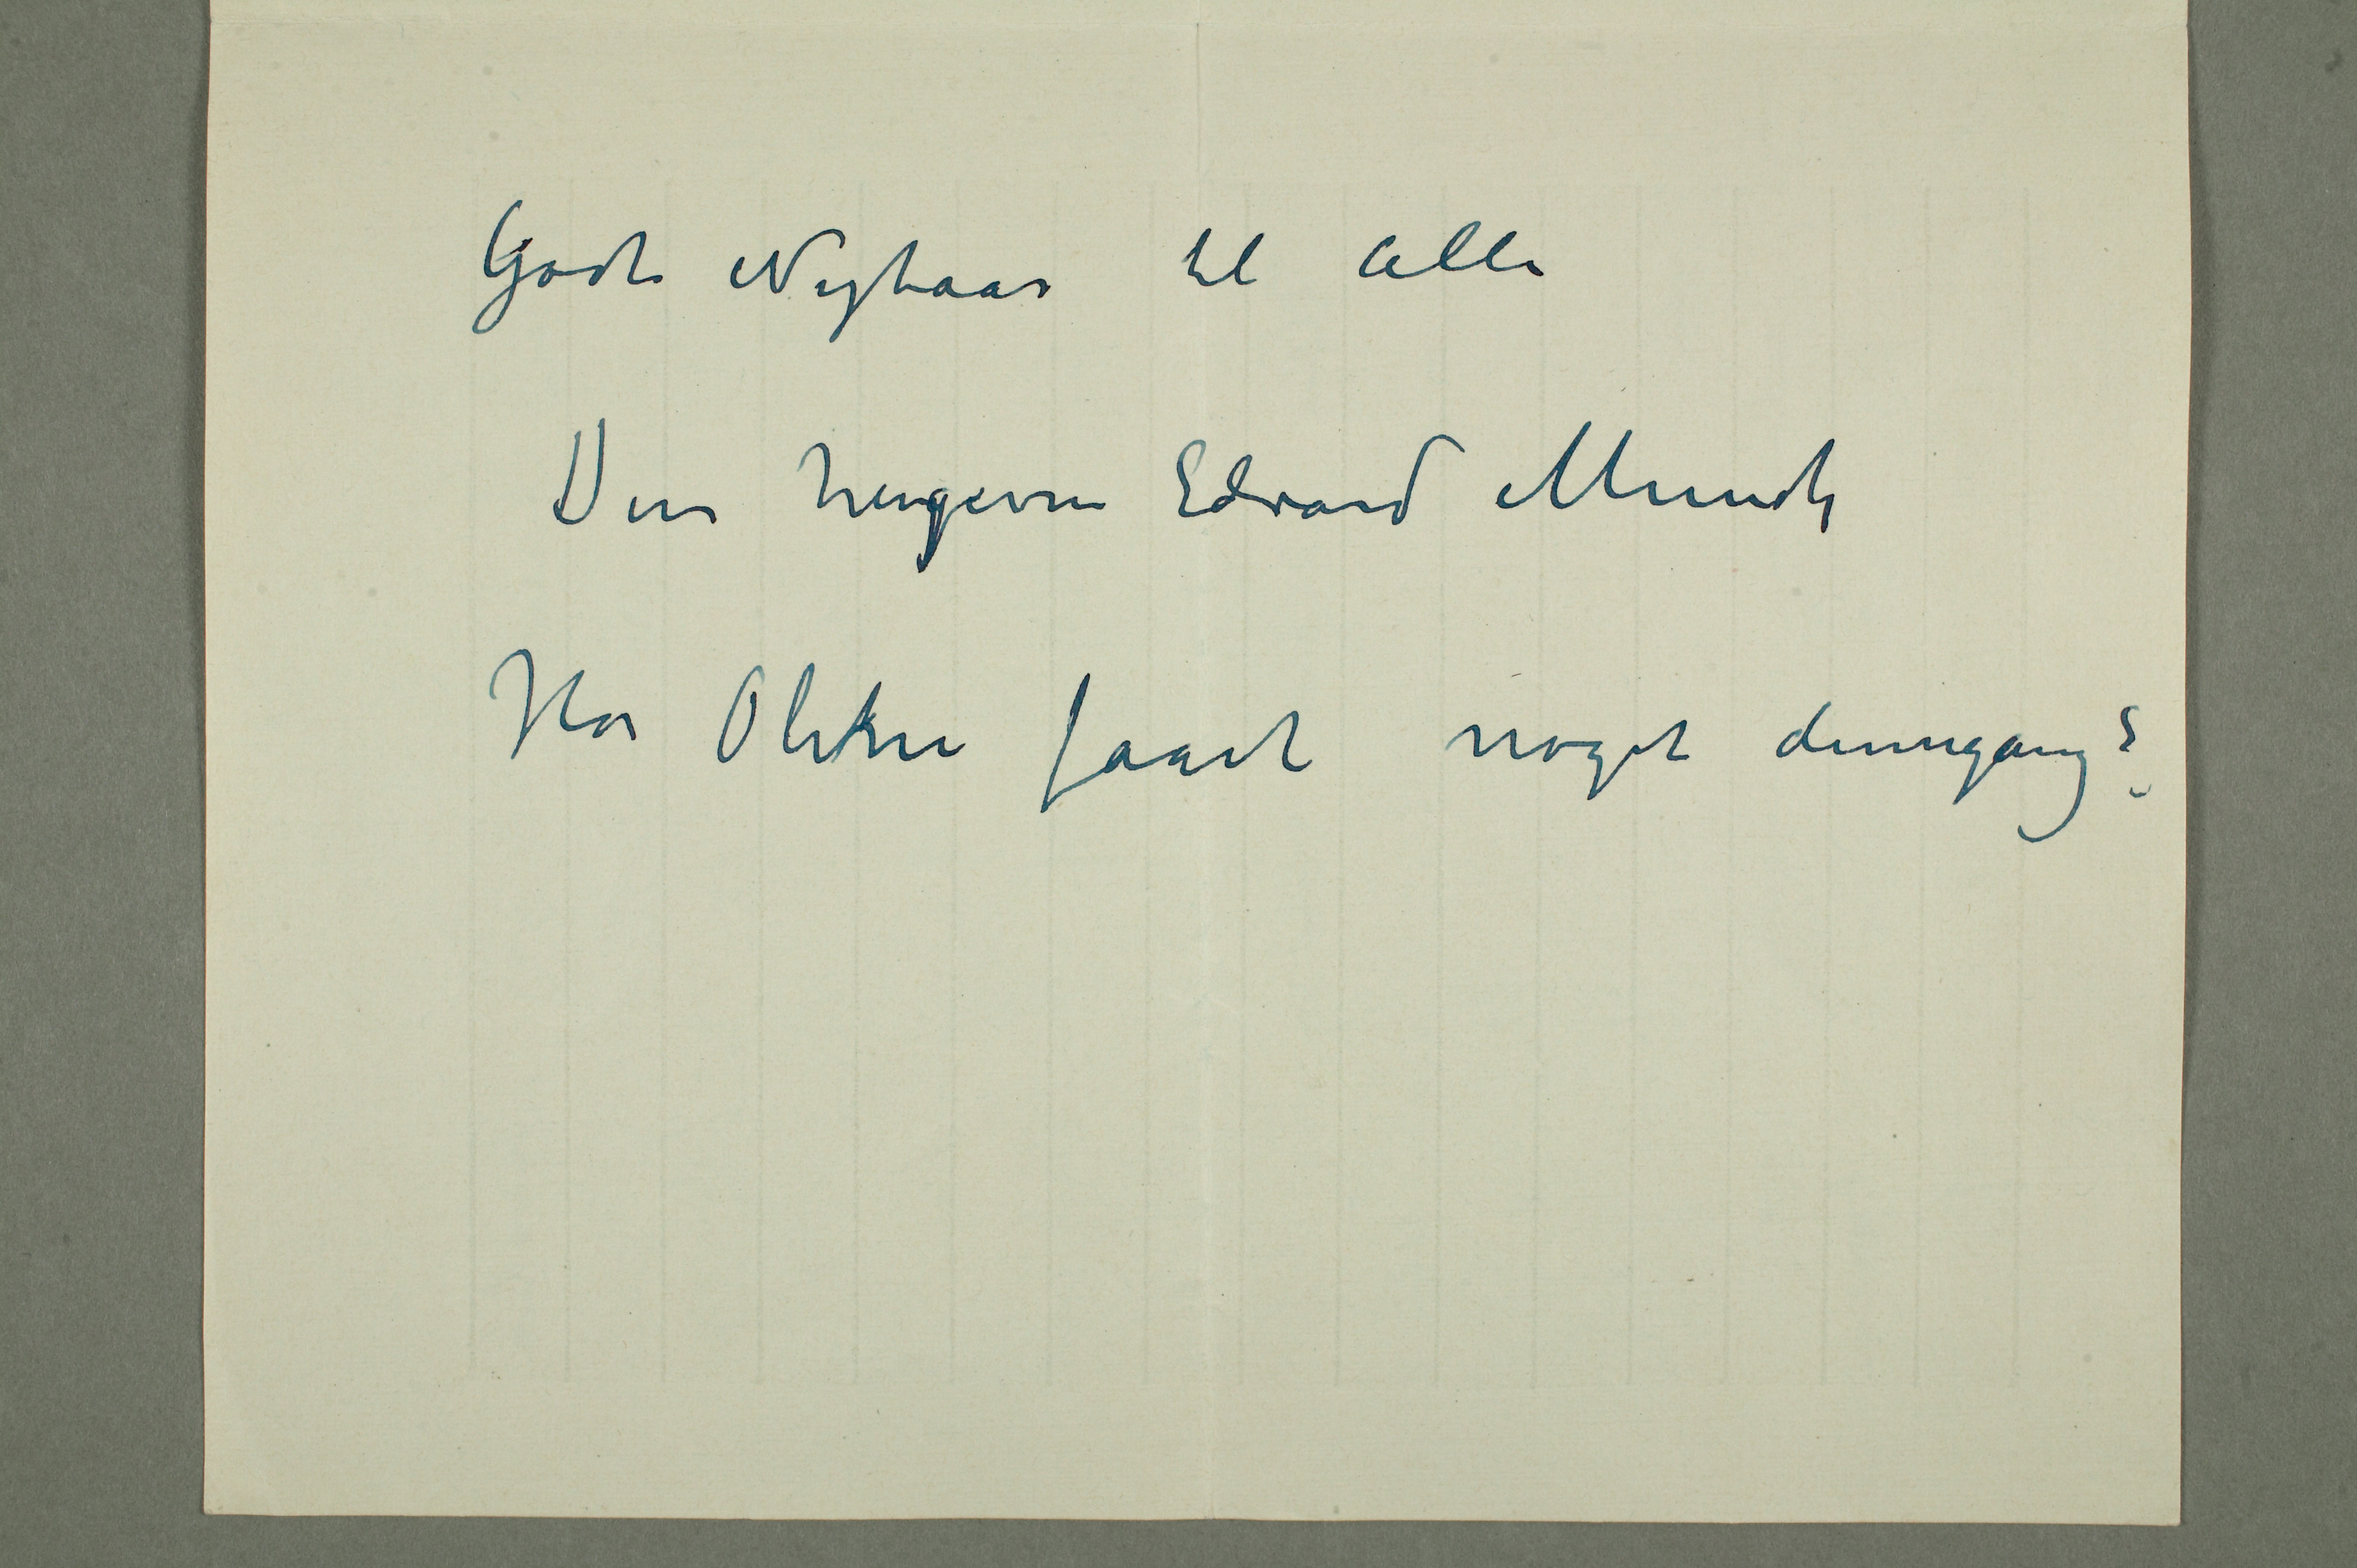 Godt Nytaar til alle
Din hengivne Edvard Munch
Har Olsken faaet noget dennegang?